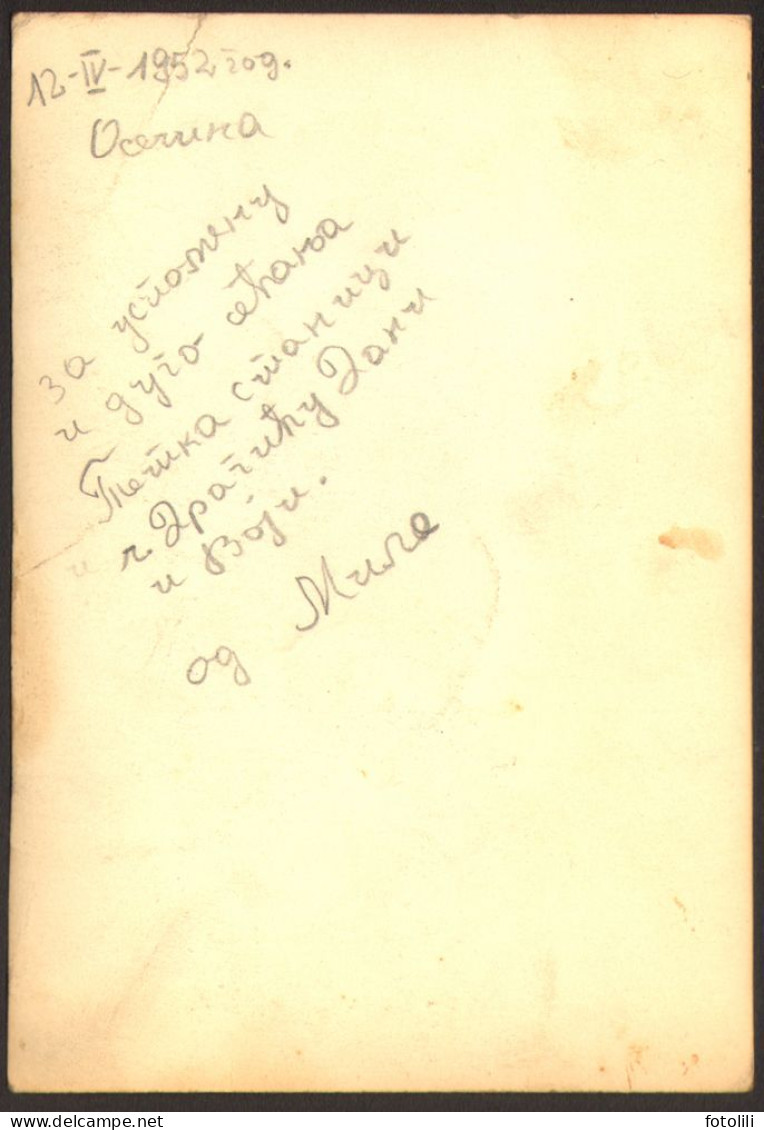 12-IV-1952 год.
Осечина
за успомену
и дуго сећања
Тетка станици
ч. Драгићу Дани
и Воји.
од Миле
fotolili